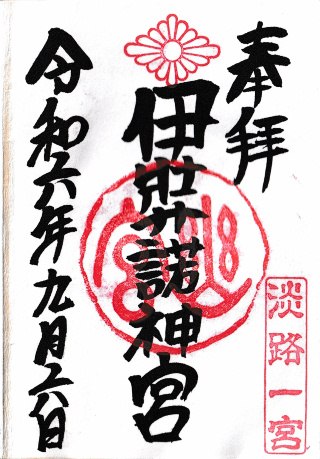 奉拝
淡路一宮
伊弉諾神宮
令和六年九月六日